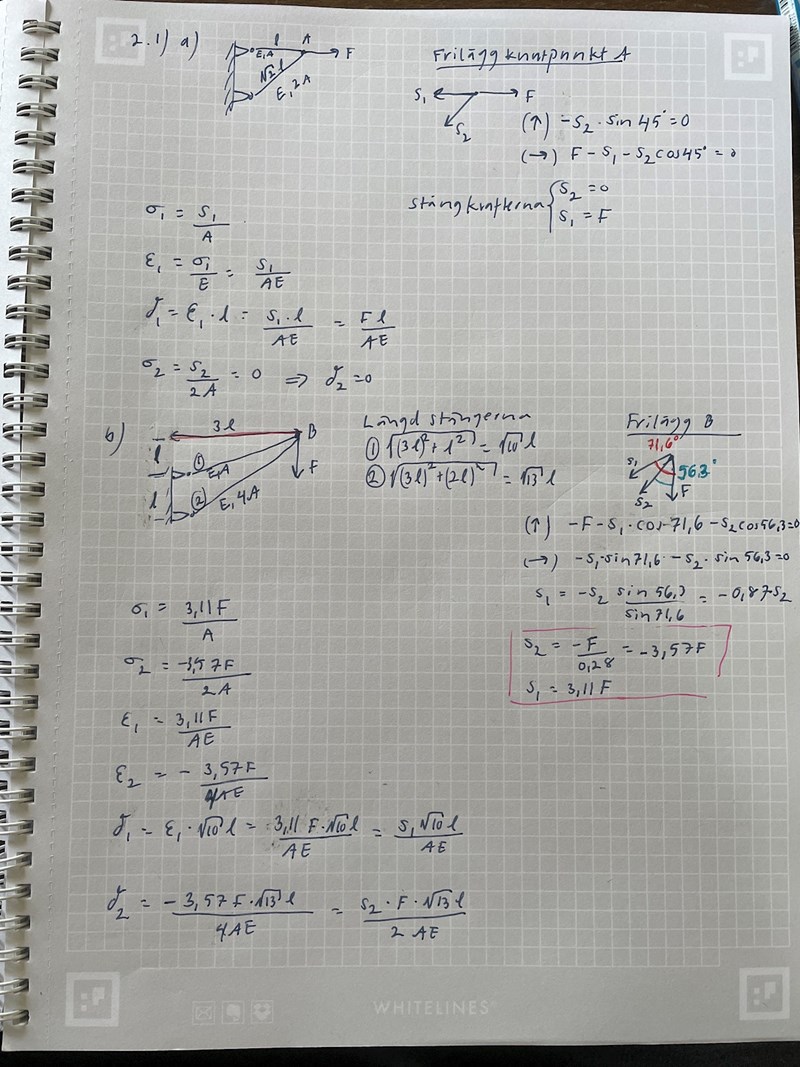 2.1) a)
l A
E,A F
√2 l
E, 2A
Frilägg knutpunkt A
S₁ F
S₂
(↑) -S₂ · sin 45° = 0
(→) F - S₁ - S₂ cos 45° = 0
stångkrafterna { S₂ = 0
S₁ = F
σ₁ = S₁/A
ε₁ = σ₁/E = S₁/AE
δ₁ = ε₁ · l = S₁ · l/AE = Fl/AE
σ₂ = S₂/2A = 0 => δ₂ = 0
b)
3l B
l ① E,A F
l ② E, 4A
Längd stängerna
① √((3l)² + l²) = √10 l
② √((3l)² + (2l)²) = √13 l
Frilägg B
71,6°
S₁ 56,3°
S₂ F
(↑) -F - S₁ · cos 71,6 - S₂ cos 56,3 = 0
(→) -S₁ · sin 71,6 - S₂ · sin 56,3 = 0
S₁ = -S₂ sin 56,3/sin 71,6 = -0,87 S₂
S₂ = -F/0,28 = -3,57 F
S₁ = 3,11 F
σ₁ = 3,11 F/A
σ₂ = -3,57 F/2A
ε₁ = 3,11 F/AE
ε₂ = - 3,57 F/4AE
δ₁ = ε₁ · √10 l = 3,11 F · √10 l/AE = S₁ √10 l/AE
δ₂ = -3,57 F · √13 l/4AE = S₂ · F · √13 l/2AE
WHITELINES®